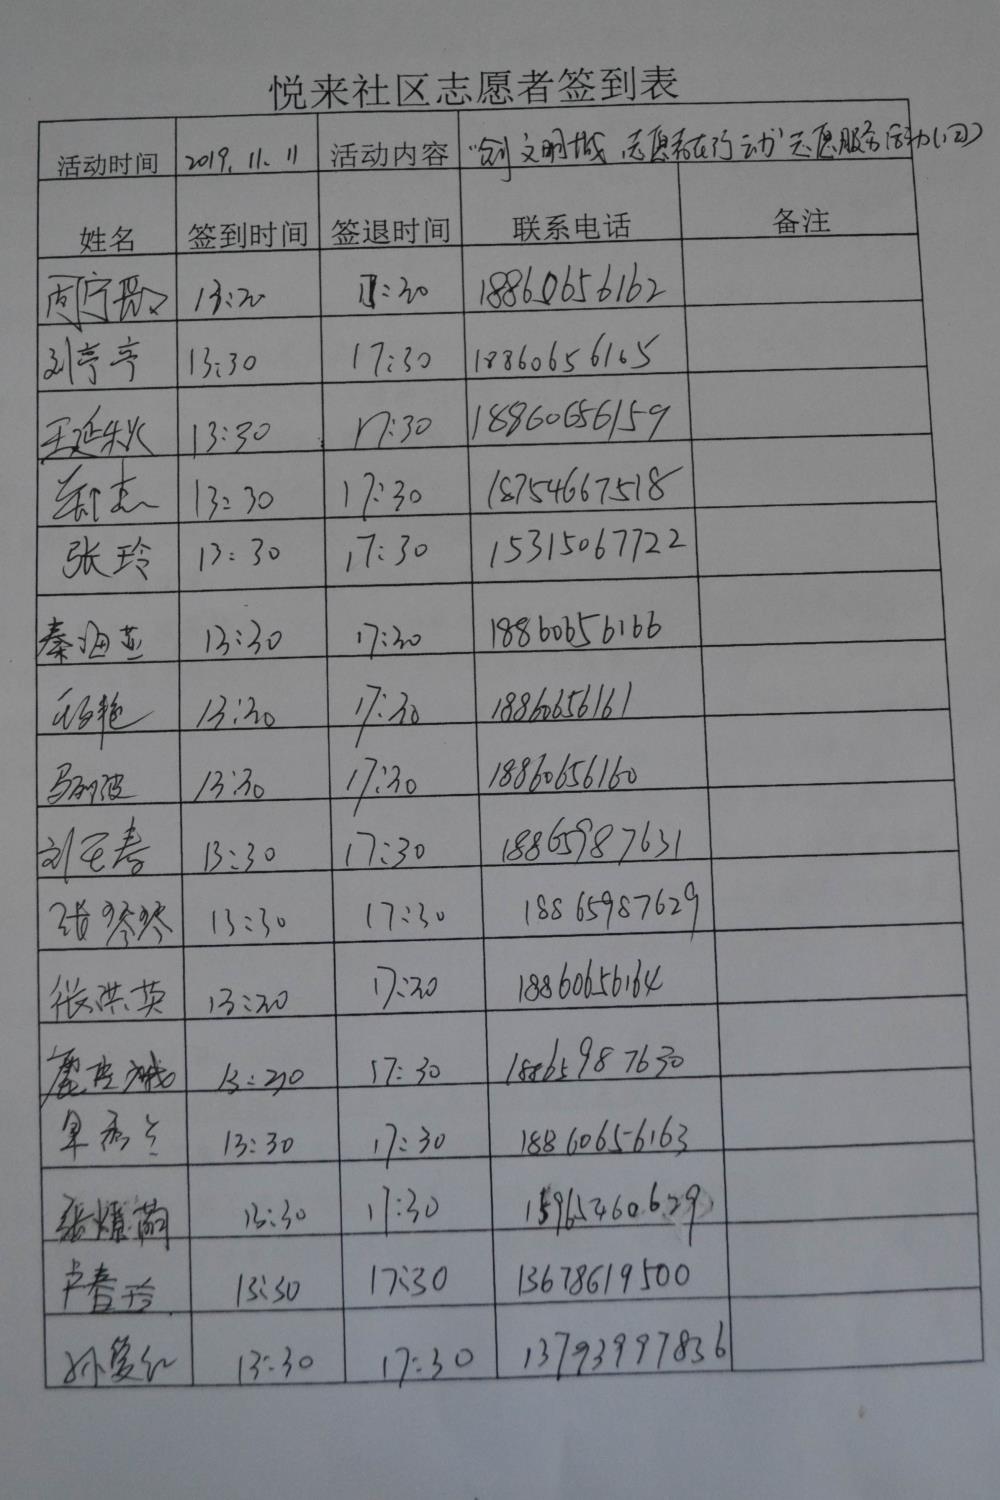 悦来社区志愿者签到表
活动时间 2019.11.11 活动内容 "创文明城,志愿者在行动"志愿服务活动(四)
姓名 签到时间 签退时间 联系电话 备注
13:30 17:30 18860656162
刘亭亭 13:30 17:30 18860656165
王延秋 13:30 17:30 18860656159
13:30 17:30 18754667518
张玲 13:30 17:30 15315067722
秦海燕 13:30 17:30 18860656166
杨艳 13:30 17:30 18860656161
13:30 17:30 18860656160
13:30 17:30 18865987631
张琴琴 13:30 17:30 18865987629
张洪英 13:30 17:30 18860656164
13:30 17:30 18865987630
13:30 17:30 18860656163
13:30 17:30 15965460629
卢春玲 13:30 17:30 13678619500
孙爱红 13:30 17:30 13793997836